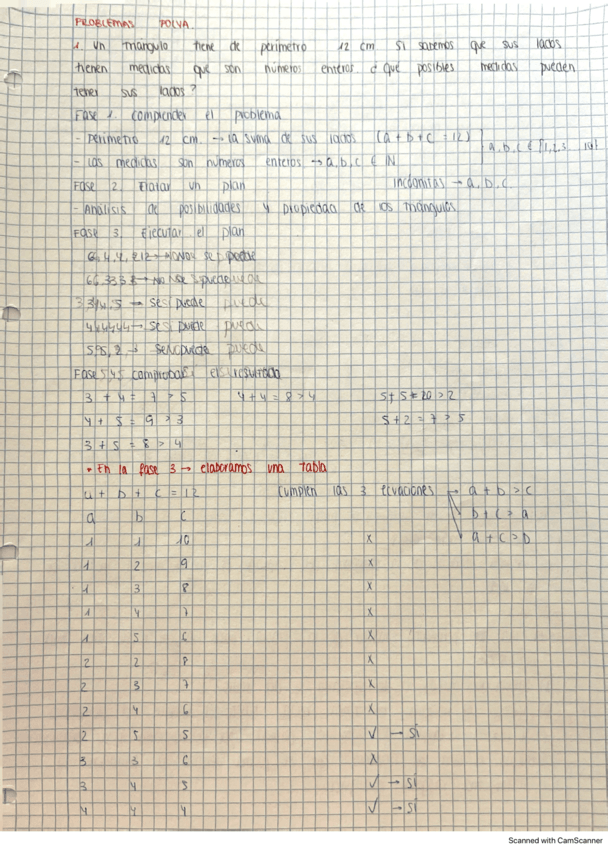 PROBLEMAS POLVA.
1. Un triángulo tiene de perímetro 12 cm si sabemos que sus lados
tienen medidas que son números enteros. ¿Qué posibles medidas pueden
tener sus lados?
Fase 1. comprender el problema
- Perímetro 12 cm. → la suma de sus lados (a + b + c = 12)
a, b, c ∈ {1,2,3 ... 10}
- Las medidas son números enteros → a, b, c ∈ N
Fase 2. Tratar un plan incógnitas → a, b, c.
- Análisis de posibilidades y propiedad de los triángulos
Fase 3. Ejecutar el plan
→ no se puede
→ no se puede
3, 4, 5 → se puede
4, 4, 4 → se puede
5, 5, 2 → se puede
Fase comprobar el resultado
3 + 4 = 7 > 5 4 + 4 = 8 > 4 5 + 5 = 10 > 2
4 + 5 = 9 > 3 5 + 2 = 7 > 5
3 + 5 = 8 > 4
* En la fase 3 → elaboramos una tabla
a + b + c = 12 cumplen las 3 ecuaciones → a + b > c
a b c b + c > a
1 1 10 x a + c > b
1 2 9 x
1 3 8 x
1 4 7 x
1 5 6 x
2 2 8 x
2 3 7 x
2 4 6 x
2 5 5 ✓ → SÍ
3 3 6 x
3 4 5 ✓ → SÍ
4 4 4 ✓ → SÍ
Scanned with CamScanner